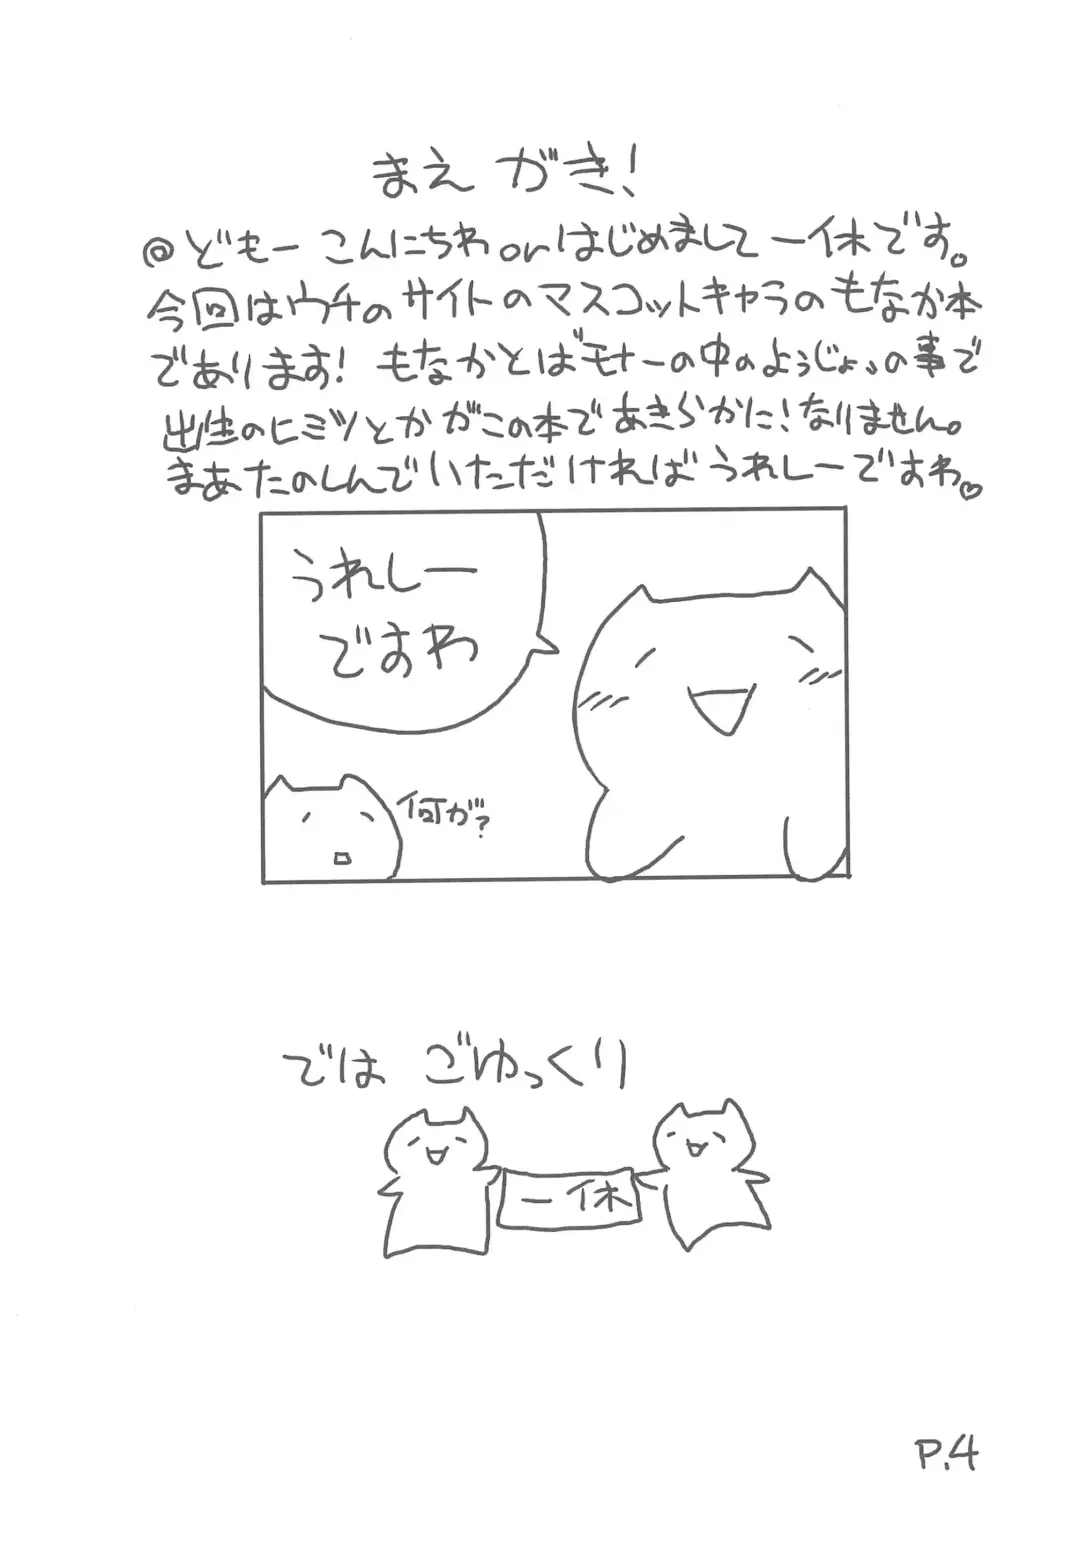 まえがき！
@どもー こんにちわorはじめまして 一休です。
今回はウチのサイトのマスコットキャラのもなか本
であります！ もなかとは"モナーの中のようじょ"の事で
出生のヒミツとかがこの本であきらかに！なりません。
まあたのしんでいただければうれしーですわ♡
うれしー
ですわ
何が？
では ごゆっくり
一休
P.4